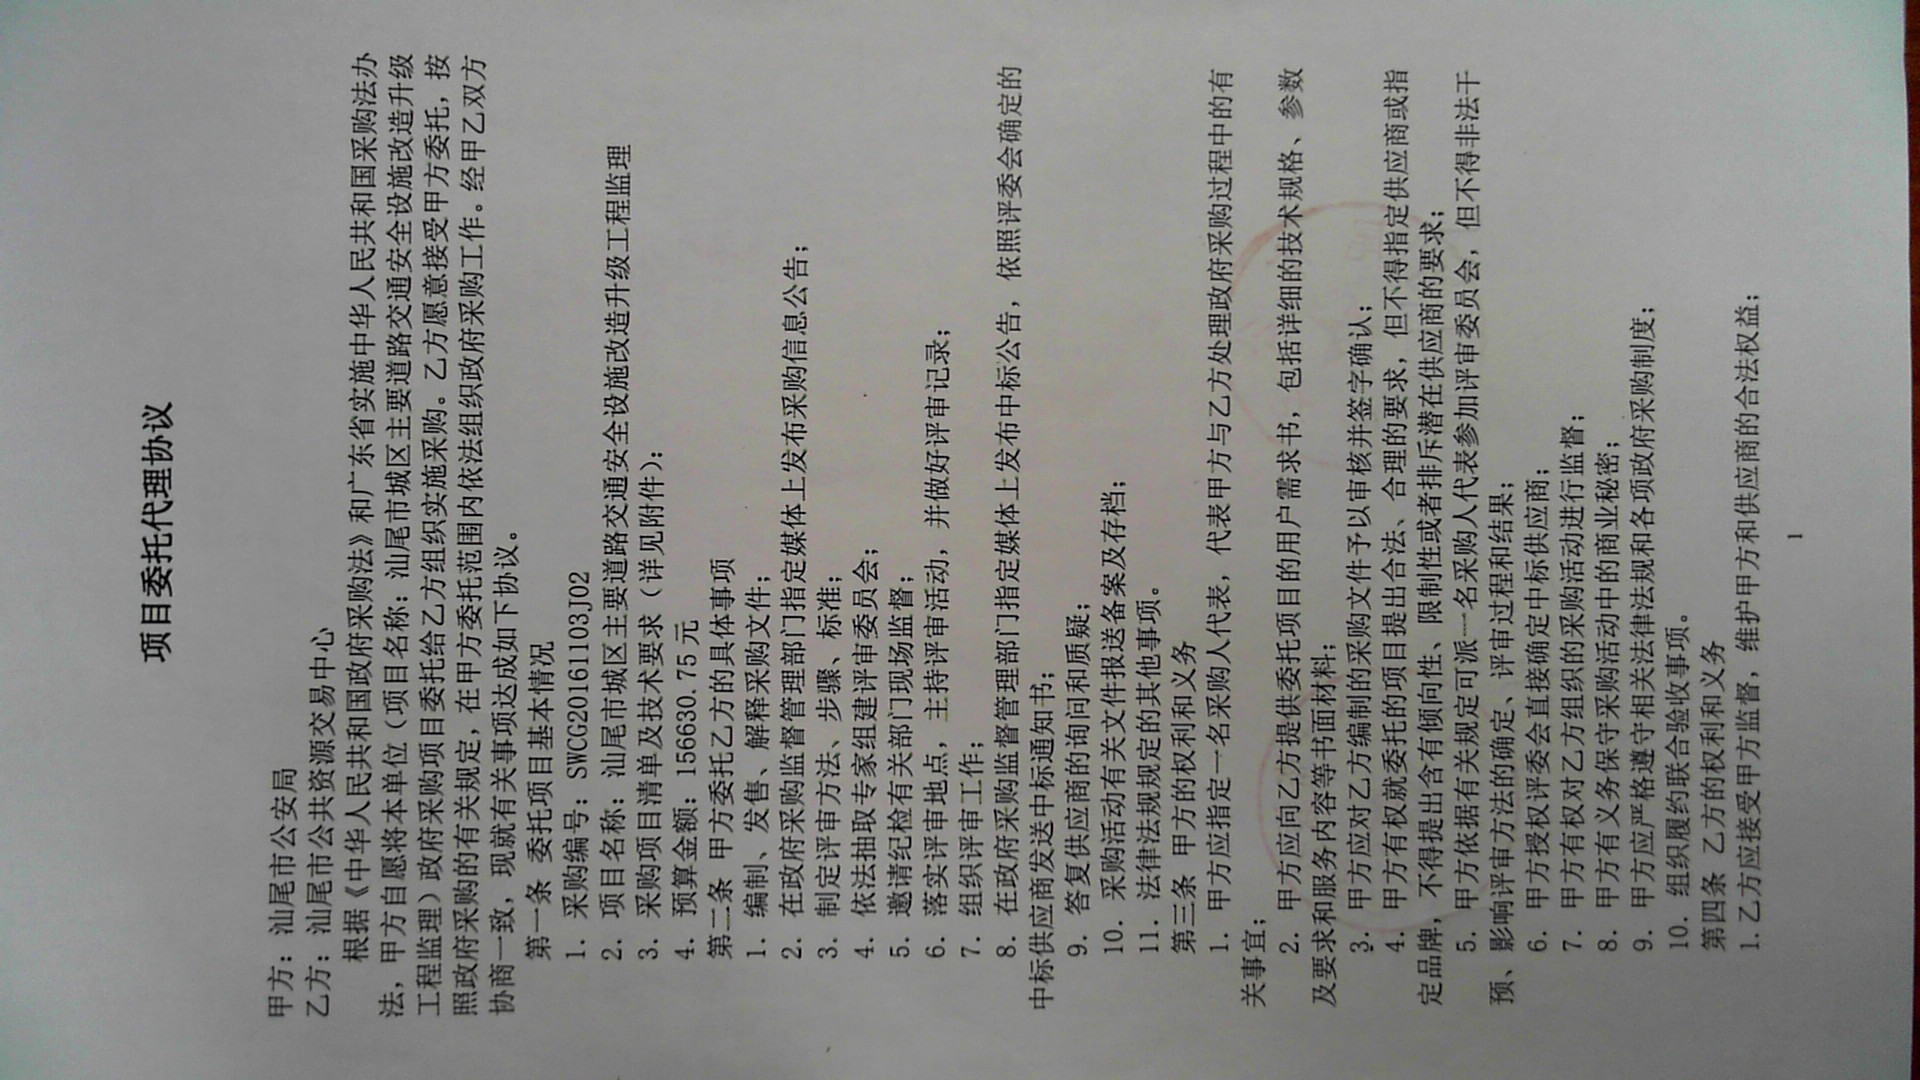 项目委托代理协议
甲方：汕尾市公安局
乙方：汕尾市公共资源交易中心
根据《中华人民共和国政府采购法》和广东省实施中华人民共和国采购法办
法，甲方自愿将本单位（项目名称：汕尾市城区主要道路交通安全设施改造升级
工程监理）政府采购项目委托给乙方组织实施采购。乙方愿意接受甲方委托，按
照政府采购的有关规定，在甲方委托范围内依法组织政府采购工作。经甲乙双方
协商一致，现就有关事项达成如下协议。
第一条 委托项目基本情况
1. 采购编号：SWCG20161103J02
2. 项目名称：汕尾市城区主要道路交通安全设施改造升级工程监理
3. 采购项目清单及技术要求（详见附件）：
4. 预算金额：156630.75元
第二条 甲方委托乙方的具体事项
1. 编制、发售、解释采购文件；
2. 在政府采购监督管理部门指定媒体上发布采购信息公告；
3. 制定评审方法、步骤、标准；
4. 依法抽取专家组建评审委员会；
5. 邀请纪检有关部门现场监督；
6. 落实评审地点，主持评审活动，并做好评审记录；
7. 组织评审工作；
8. 在政府采购监督管理部门指定媒体上发布中标公告，依照评委会确定的
中标供应商发送中标通知书；
9. 答复供应商的询问和质疑；
10. 采购活动有关文件报送备案及存档；
11. 法律法规规定的其他事项。
第三条 甲方的权利和义务
1. 甲方应指定一名采购人代表，代表甲方与乙方处理政府采购过程中的有
关事宜；
2. 甲方应向乙方提供委托项目的用户需求书，包括详细的技术规格、参数
及要求和服务内容等书面材料；
3. 甲方应对乙方编制的采购文件予以审核并签字确认；
4. 甲方有权就委托的项目提出合法、合理的要求，但不得指定供应商或指
定品牌，不得提出含有倾向性、限制性或者排斥潜在供应商的要求；
5. 甲方依据有关规定可派一名采购人代表参加评审委员会，但不得非法干
预、影响评审方法的确定、评审过程和结果；
6. 甲方授权评委会直接确定中标供应商；
7. 甲方有权对乙方组织的采购活动进行监督；
8. 甲方有义务保守采购活动中的商业秘密；
9. 甲方应严格遵守相关法律法规和各项政府采购制度；
10. 组织履约联合验收事项。
第四条 乙方的权利和义务
1. 乙方应接受甲方监督，维护甲方和供应商的合法权益；
1